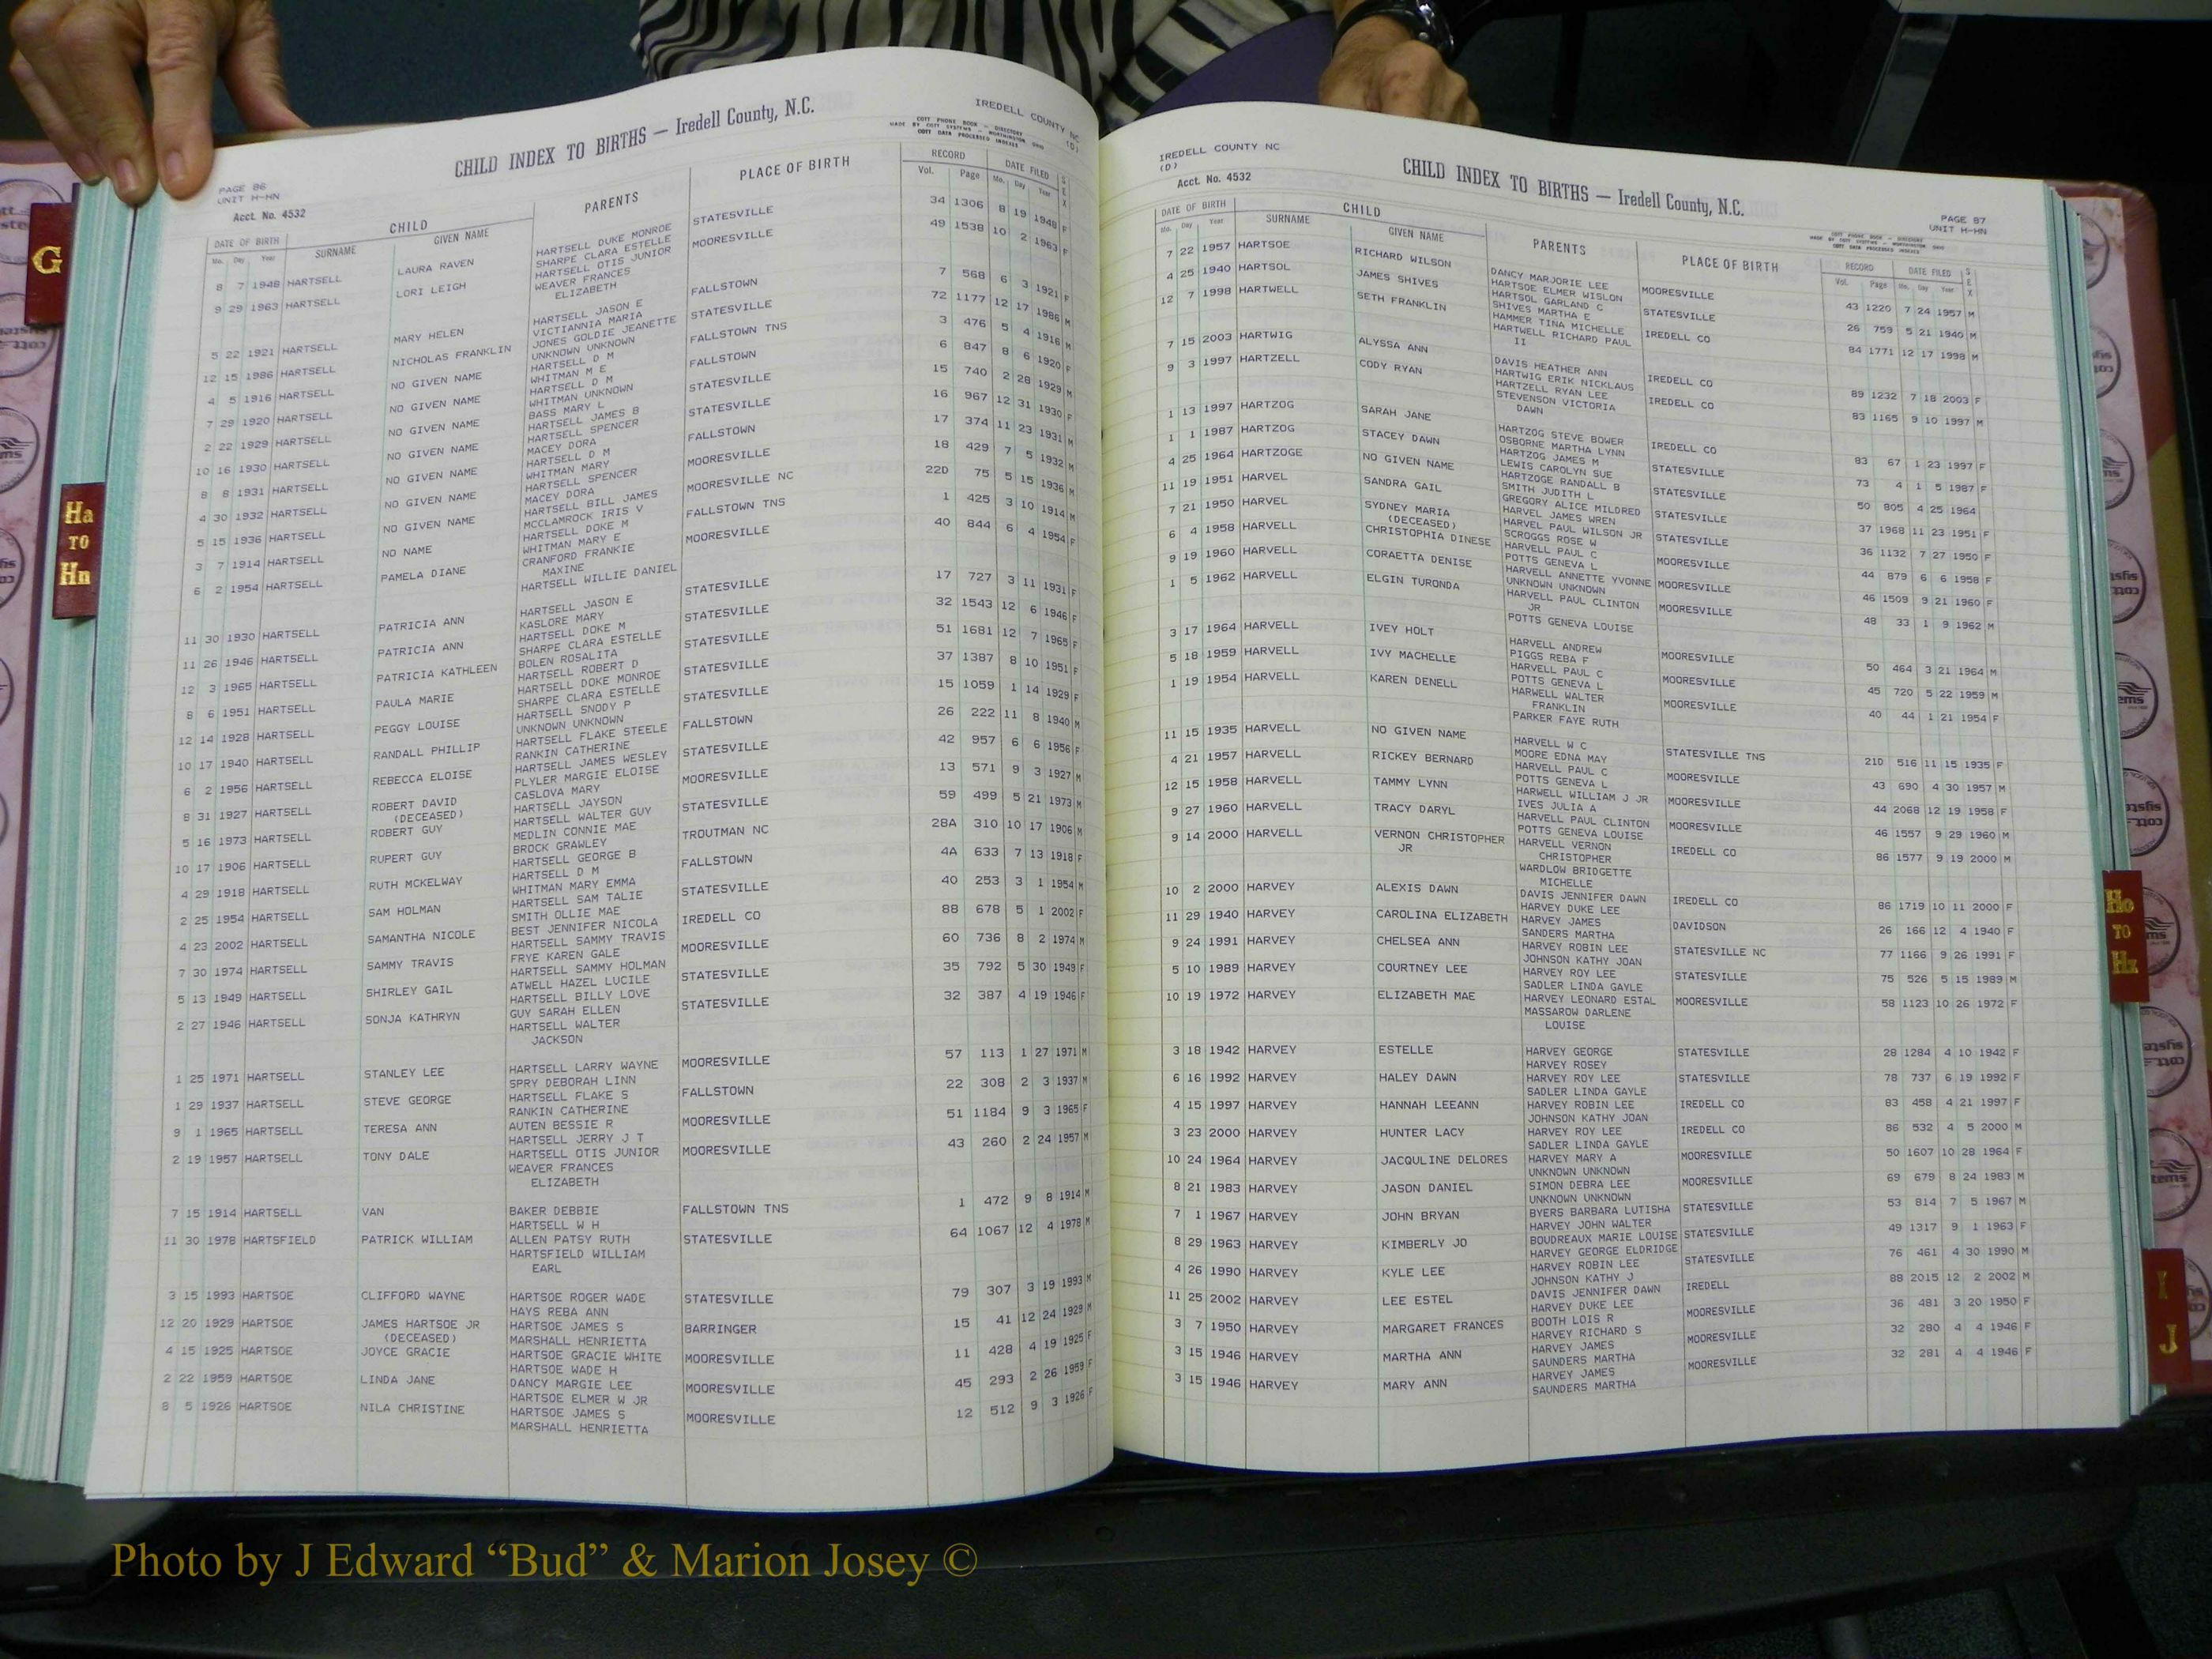 IREDELL COUNTY NC
(D)
CHILD INDEX TO BIRTHS — Iredell County, N.C.
COTT PHONE BOOK - DIRECTORY
MADE BY COTT SYSTEMS - WORTHINGTON, OHIO
COTT DATA PROCESSED INDEXES
PAGE 86
UNIT H-HN
Acct. No. 4532
DATE OF BIRTH CHILD PARENTS PLACE OF BIRTH RECORD DATE FILED SEX
Mo. Day Year SURNAME GIVEN NAME Vol. Page Mo. Day Year
8 7 1948 HARTSELL LAURA RAVEN HARTSELL DUKE MONROE STATESVILLE 34 1306 8 19 1948 F
SHARPE CLARA ESTELLE
9 29 1963 HARTSELL LORI LEIGH HARTSELL OTIS JUNIOR MOORESVILLE 49 1538 10 2 1963 F
WEAVER FRANCES
ELIZABETH
5 22 1921 HARTSELL MARY HELEN HARTSELL JASON E FALLSTOWN 7 568 6 3 1921 F
VICTIANNIA MARIA
12 15 1986 HARTSELL NICHOLAS FRANKLIN JONES GOLDIE JEANETTE STATESVILLE 72 1177 12 17 1986 M
UNKNOWN UNKNOWN
4 5 1916 HARTSELL NO GIVEN NAME HARTSELL D M FALLSTOWN TNS 3 476 5 4 1916 M
WHITMAN M E
7 29 1920 HARTSELL NO GIVEN NAME HARTSELL D M FALLSTOWN 6 847 8 6 1920 F
WHITMAN UNKNOWN
2 22 1929 HARTSELL NO GIVEN NAME BASS MARY L STATESVILLE 15 740 2 28 1929 M
HARTSELL JAMES B
10 16 1930 HARTSELL NO GIVEN NAME HARTSELL SPENCER STATESVILLE 16 967 12 31 1930 F
MACEY DORA
8 8 1931 HARTSELL NO GIVEN NAME HARTSELL D M FALLSTOWN 17 374 11 23 1931 M
WHITMAN MARY
4 30 1932 HARTSELL NO GIVEN NAME HARTSELL SPENCER MOORESVILLE 18 429 7 5 1932 M
MACEY DORA
5 15 1936 HARTSELL NO GIVEN NAME HARTSELL BILL JAMES MOORESVILLE NC 22D 75 5 15 1936 M
MCCLAMROCK IRIS V
3 7 1914 HARTSELL NO NAME HARTSELL DOKE M FALLSTOWN TNS 1 425 3 10 1914 M
WHITMAN MARY E
6 2 1954 HARTSELL PAMELA DIANE CRANFORD FRANKIE MOORESVILLE 40 844 6 4 1954 F
MAXINE
HARTSELL WILLIE DANIEL
11 30 1930 HARTSELL PATRICIA ANN HARTSELL JASON E STATESVILLE 17 727 3 11 1931 F
KASLORE MARY
11 26 1946 HARTSELL PATRICIA ANN HARTSELL DOKE M STATESVILLE 32 1543 12 6 1946 F
SHARPE CLARA ESTELLE
12 3 1965 HARTSELL PATRICIA KATHLEEN BOLEN ROSALITA STATESVILLE 51 1681 12 7 1965 F
HARTSELL ROBERT D
8 6 1951 HARTSELL PAULA MARIE HARTSELL DOKE MONROE STATESVILLE 37 1387 8 10 1951 F
SHARPE CLARA ESTELLE
12 14 1928 HARTSELL PEGGY LOUISE HARTSELL SNODY P STATESVILLE 15 1059 1 14 1929 F
UNKNOWN UNKNOWN
10 17 1940 HARTSELL RANDALL PHILLIP HARTSELL FLAKE STEELE FALLSTOWN 26 222 11 8 1940 M
RANKIN CATHERINE
6 2 1956 HARTSELL REBECCA ELOISE HARTSELL JAMES WESLEY STATESVILLE 42 957 6 6 1956 F
PLYLER MARGIE ELOISE
8 31 1927 HARTSELL ROBERT DAVID CASLOVA MARY MOORESVILLE 13 571 9 3 1927 M
(DECEASED) HARTSELL JAYSON
5 16 1973 HARTSELL ROBERT GUY HARTSELL WALTER GUY STATESVILLE 59 499 5 21 1973 M
MEDLIN CONNIE MAE
10 17 1906 HARTSELL RUPERT GUY BROCK GRAWLEY TROUTMAN NC 28A 310 10 17 1906 M
HARTSELL GEORGE B
4 29 1918 HARTSELL RUTH MCKELWAY HARTSELL D M FALLSTOWN 4A 633 7 13 1918 F
WHITMAN MARY EMMA
2 25 1954 HARTSELL SAM HOLMAN HARTSELL SAM TALIE STATESVILLE 40 253 3 1 1954 M
SMITH OLLIE MAE
4 23 2002 HARTSELL SAMANTHA NICOLE BEST JENNIFER NICOLA IREDELL CO 88 678 5 1 2002 F
HARTSELL SAMMY TRAVIS
7 30 1974 HARTSELL SAMMY TRAVIS FRYE KAREN GALE MOORESVILLE 60 736 8 2 1974 M
HARTSELL SAMMY HOLMAN
5 13 1949 HARTSELL SHIRLEY GAIL ATWELL HAZEL LUCILE STATESVILLE 35 792 5 30 1949 F
HARTSELL BILLY LOVE
2 27 1946 HARTSELL SONJA KATHRYN GUY SARAH ELLEN STATESVILLE 32 387 4 19 1946 F
HARTSELL WALTER
JACKSON
1 25 1971 HARTSELL STANLEY LEE HARTSELL LARRY WAYNE MOORESVILLE 57 113 1 27 1971 M
SPRY DEBORAH LINN
1 29 1937 HARTSELL STEVE GEORGE HARTSELL FLAKE S FALLSTOWN 22 308 2 3 1937 M
RANKIN CATHERINE
9 1 1965 HARTSELL TERESA ANN AUTEN BESSIE R MOORESVILLE 51 1184 9 3 1965 F
HARTSELL JERRY J T
2 19 1957 HARTSELL TONY DALE HARTSELL OTIS JUNIOR MOORESVILLE 43 260 2 24 1957 M
WEAVER FRANCES
ELIZABETH
7 15 1914 HARTSELL VAN BAKER DEBBIE FALLSTOWN TNS 1 472 9 8 1914 M
HARTSELL W H
11 30 1978 HARTSFIELD PATRICK WILLIAM ALLEN PATSY RUTH STATESVILLE 64 1067 12 4 1978 M
HARTSFIELD WILLIAM
EARL
3 15 1993 HARTSOE CLIFFORD WAYNE HARTSOE ROGER WADE STATESVILLE 79 307 3 19 1993 M
HAYS REBA ANN
12 20 1929 HARTSOE JAMES HARTSOE JR HARTSOE JAMES S BARRINGER 15 41 12 24 1929 M
(DECEASED) MARSHALL HENRIETTA
4 15 1925 HARTSOE JOYCE GRACIE HARTSOE GRACIE WHITE MOORESVILLE 11 428 4 19 1925 F
HARTSOE WADE H
2 22 1959 HARTSOE LINDA JANE DANCY MARGIE LEE MOORESVILLE 45 293 2 26 1959 F
HARTSOE ELMER W JR
8 5 1926 HARTSOE NILA CHRISTINE HARTSOE JAMES S MOORESVILLE 12 512 9 3 1926 F
MARSHALL HENRIETTA
IREDELL COUNTY NC
(D)
Acct. No. 4532
CHILD INDEX TO BIRTHS — Iredell County, N.C.
PAGE 87
UNIT H-HN
COTT PHONE BOOK - DIRECTORY
MADE BY COTT SYSTEMS - WORTHINGTON, OHIO
COTT DATA PROCESSED INDEXES
DATE OF BIRTH CHILD PARENTS PLACE OF BIRTH RECORD DATE FILED SEX
Mo. Day Year SURNAME GIVEN NAME Vol. Page Mo. Day Year
7 22 1957 HARTSOE RICHARD WILSON DANCY MARJORIE LEE MOORESVILLE 43 1220 7 24 1957 M
HARTSOE ELMER WISLON
4 25 1940 HARTSOL JAMES SHIVES HARTSOL GARLAND C STATESVILLE 26 759 5 21 1940 M
SHIVES MARTHA E
12 7 1998 HARTWELL SETH FRANKLIN HAMMER TINA MICHELLE IREDELL CO 84 1771 12 17 1998 M
HARTWELL RICHARD PAUL
II
7 15 2003 HARTWIG ALYSSA ANN DAVIS HEATHER ANN IREDELL CO 89 1232 7 18 2003 F
HARTWIG ERIK NICKLAUS
9 3 1997 HARTZELL CODY RYAN HARTZELL RYAN LEE IREDELL CO 83 1165 9 10 1997 M
STEVENSON VICTORIA
DAWN
1 13 1997 HARTZOG SARAH JANE HARTZOG STEVE BOWER IREDELL CO 83 67 1 23 1997 F
OSBORNE MARTHA LYNN
1 1 1987 HARTZOG STACEY DAWN HARTZOG JAMES M STATESVILLE 73 4 1 5 1987 F
LEWIS CAROLYN SUE
4 25 1964 HARTZOGE NO GIVEN NAME HARTZOGE RANDALL B STATESVILLE 50 805 4 25 1964
SMITH JUDITH L
11 19 1951 HARVEL SANDRA GAIL GREGORY ALICE MILDRED STATESVILLE 37 1968 11 23 1951 F
HARVEL JAMES WREN
7 21 1950 HARVEL SYDNEY MARIA HARVEL PAUL WILSON JR STATESVILLE 36 1132 7 27 1950 F
(DECEASED) SCROGGS ROSE W
6 4 1958 HARVELL CHRISTOPHIA DINESE HARVELL PAUL C MOORESVILLE 44 879 6 6 1958 F
POTTS GENEVA L
9 19 1960 HARVELL CORAETTA DENISE HARVELL ANNETTE YVONNE MOORESVILLE 46 1509 9 21 1960 F
UNKNOWN UNKNOWN
1 5 1962 HARVELL ELGIN TURONDA HARVELL PAUL CLINTON MOORESVILLE 48 33 1 9 1962 M
JR
POTTS GENEVA LOUISE
3 17 1964 HARVELL IVEY HOLT HARVELL ANDREW MOORESVILLE 50 464 3 21 1964 M
PIGGS REBA F
5 18 1959 HARVELL IVY MACHELLE HARVELL PAUL C MOORESVILLE 45 720 5 22 1959 M
POTTS GENEVA L
1 19 1954 HARVELL KAREN DENELL HARWELL WALTER MOORESVILLE 40 44 1 21 1954 F
FRANKLIN
PARKER FAYE RUTH
11 15 1935 HARVELL NO GIVEN NAME HARVELL W C STATESVILLE TNS 21D 516 11 15 1935 F
MOORE EDNA MAY
4 21 1957 HARVELL RICKEY BERNARD HARVELL PAUL C MOORESVILLE 43 690 4 30 1957 M
POTTS GENEVA L
12 15 1958 HARVELL TAMMY LYNN HARWELL WILLIAM J JR MOORESVILLE 44 2068 12 19 1958 F
IVES JULIA A
9 27 1960 HARVELL TRACY DARYL HARVELL PAUL CLINTON MOORESVILLE 46 1557 9 29 1960 M
POTTS GENEVA LOUISE
9 14 2000 HARVELL VERNON CHRISTOPHER HARVELL VERNON IREDELL CO 86 1577 9 19 2000 M
JR CHRISTOPHER
WARDLOW BRIDGETTE
MICHELLE
10 2 2000 HARVEY ALEXIS DAWN DAVIS JENNIFER DAWN IREDELL CO 86 1719 10 11 2000 F
HARVEY DUKE LEE
11 29 1940 HARVEY CAROLINA ELIZABETH HARVEY JAMES DAVIDSON 26 166 12 4 1940 F
SANDERS MARTHA
9 24 1991 HARVEY CHELSEA ANN HARVEY ROBIN LEE STATESVILLE NC 77 1166 9 26 1991 F
JOHNSON KATHY JOAN
5 10 1989 HARVEY COURTNEY LEE HARVEY ROY LEE STATESVILLE 75 526 5 15 1989 M
SADLER LINDA GAYLE
10 19 1972 HARVEY ELIZABETH MAE HARVEY LEONARD ESTAL MOORESVILLE 58 1123 10 26 1972 F
MASSAROW DARLENE
LOUISE
3 18 1942 HARVEY ESTELLE HARVEY GEORGE STATESVILLE 28 1284 4 10 1942 F
HARVEY ROSEY
6 16 1992 HARVEY HALEY DAWN HARVEY ROY LEE STATESVILLE 78 737 6 19 1992 F
SADLER LINDA GAYLE
4 15 1997 HARVEY HANNAH LEEANN HARVEY ROBIN LEE IREDELL CO 83 458 4 21 1997 F
JOHNSON KATHY JOAN
3 23 2000 HARVEY HUNTER LACY HARVEY ROY LEE IREDELL CO 86 532 4 5 2000 M
SADLER LINDA GAYLE
10 24 1964 HARVEY JACQULINE DELORES HARVEY MARY A MOORESVILLE 50 1607 10 28 1964 F
UNKNOWN UNKNOWN
8 21 1983 HARVEY JASON DANIEL SIMON DEBRA LEE MOORESVILLE 69 679 8 24 1983 M
UNKNOWN UNKNOWN
7 1 1967 HARVEY JOHN BRYAN BYERS BARBARA LUTISHA STATESVILLE 53 814 7 5 1967 M
HARVEY JOHN WALTER
8 29 1963 HARVEY KIMBERLY JO BOUDREAUX MARIE LOUISE STATESVILLE 49 1317 9 1 1963 F
HARVEY GEORGE ELDRIDGE
4 26 1990 HARVEY KYLE LEE HARVEY ROBIN LEE STATESVILLE 76 461 4 30 1990 M
JOHNSON KATHY J
11 25 2002 HARVEY LEE ESTEL DAVIS JENNIFER DAWN IREDELL 88 2015 12 2 2002 M
HARVEY DUKE LEE
3 7 1950 HARVEY MARGARET FRANCES BOOTH LOIS R MOORESVILLE 36 481 3 20 1950 F
HARVEY RICHARD S
3 15 1946 HARVEY MARTHA ANN HARVEY JAMES MOORESVILLE 32 280 4 4 1946 F
SAUNDERS MARTHA
3 15 1946 HARVEY MARY ANN HARVEY JAMES MOORESVILLE 32 281 4 4 1946 F
SAUNDERS MARTHA
G
Ha
TO
Hn
Ho
TO
Hz
I
J
Photo by J Edward “Bud” & Marion Josey ©